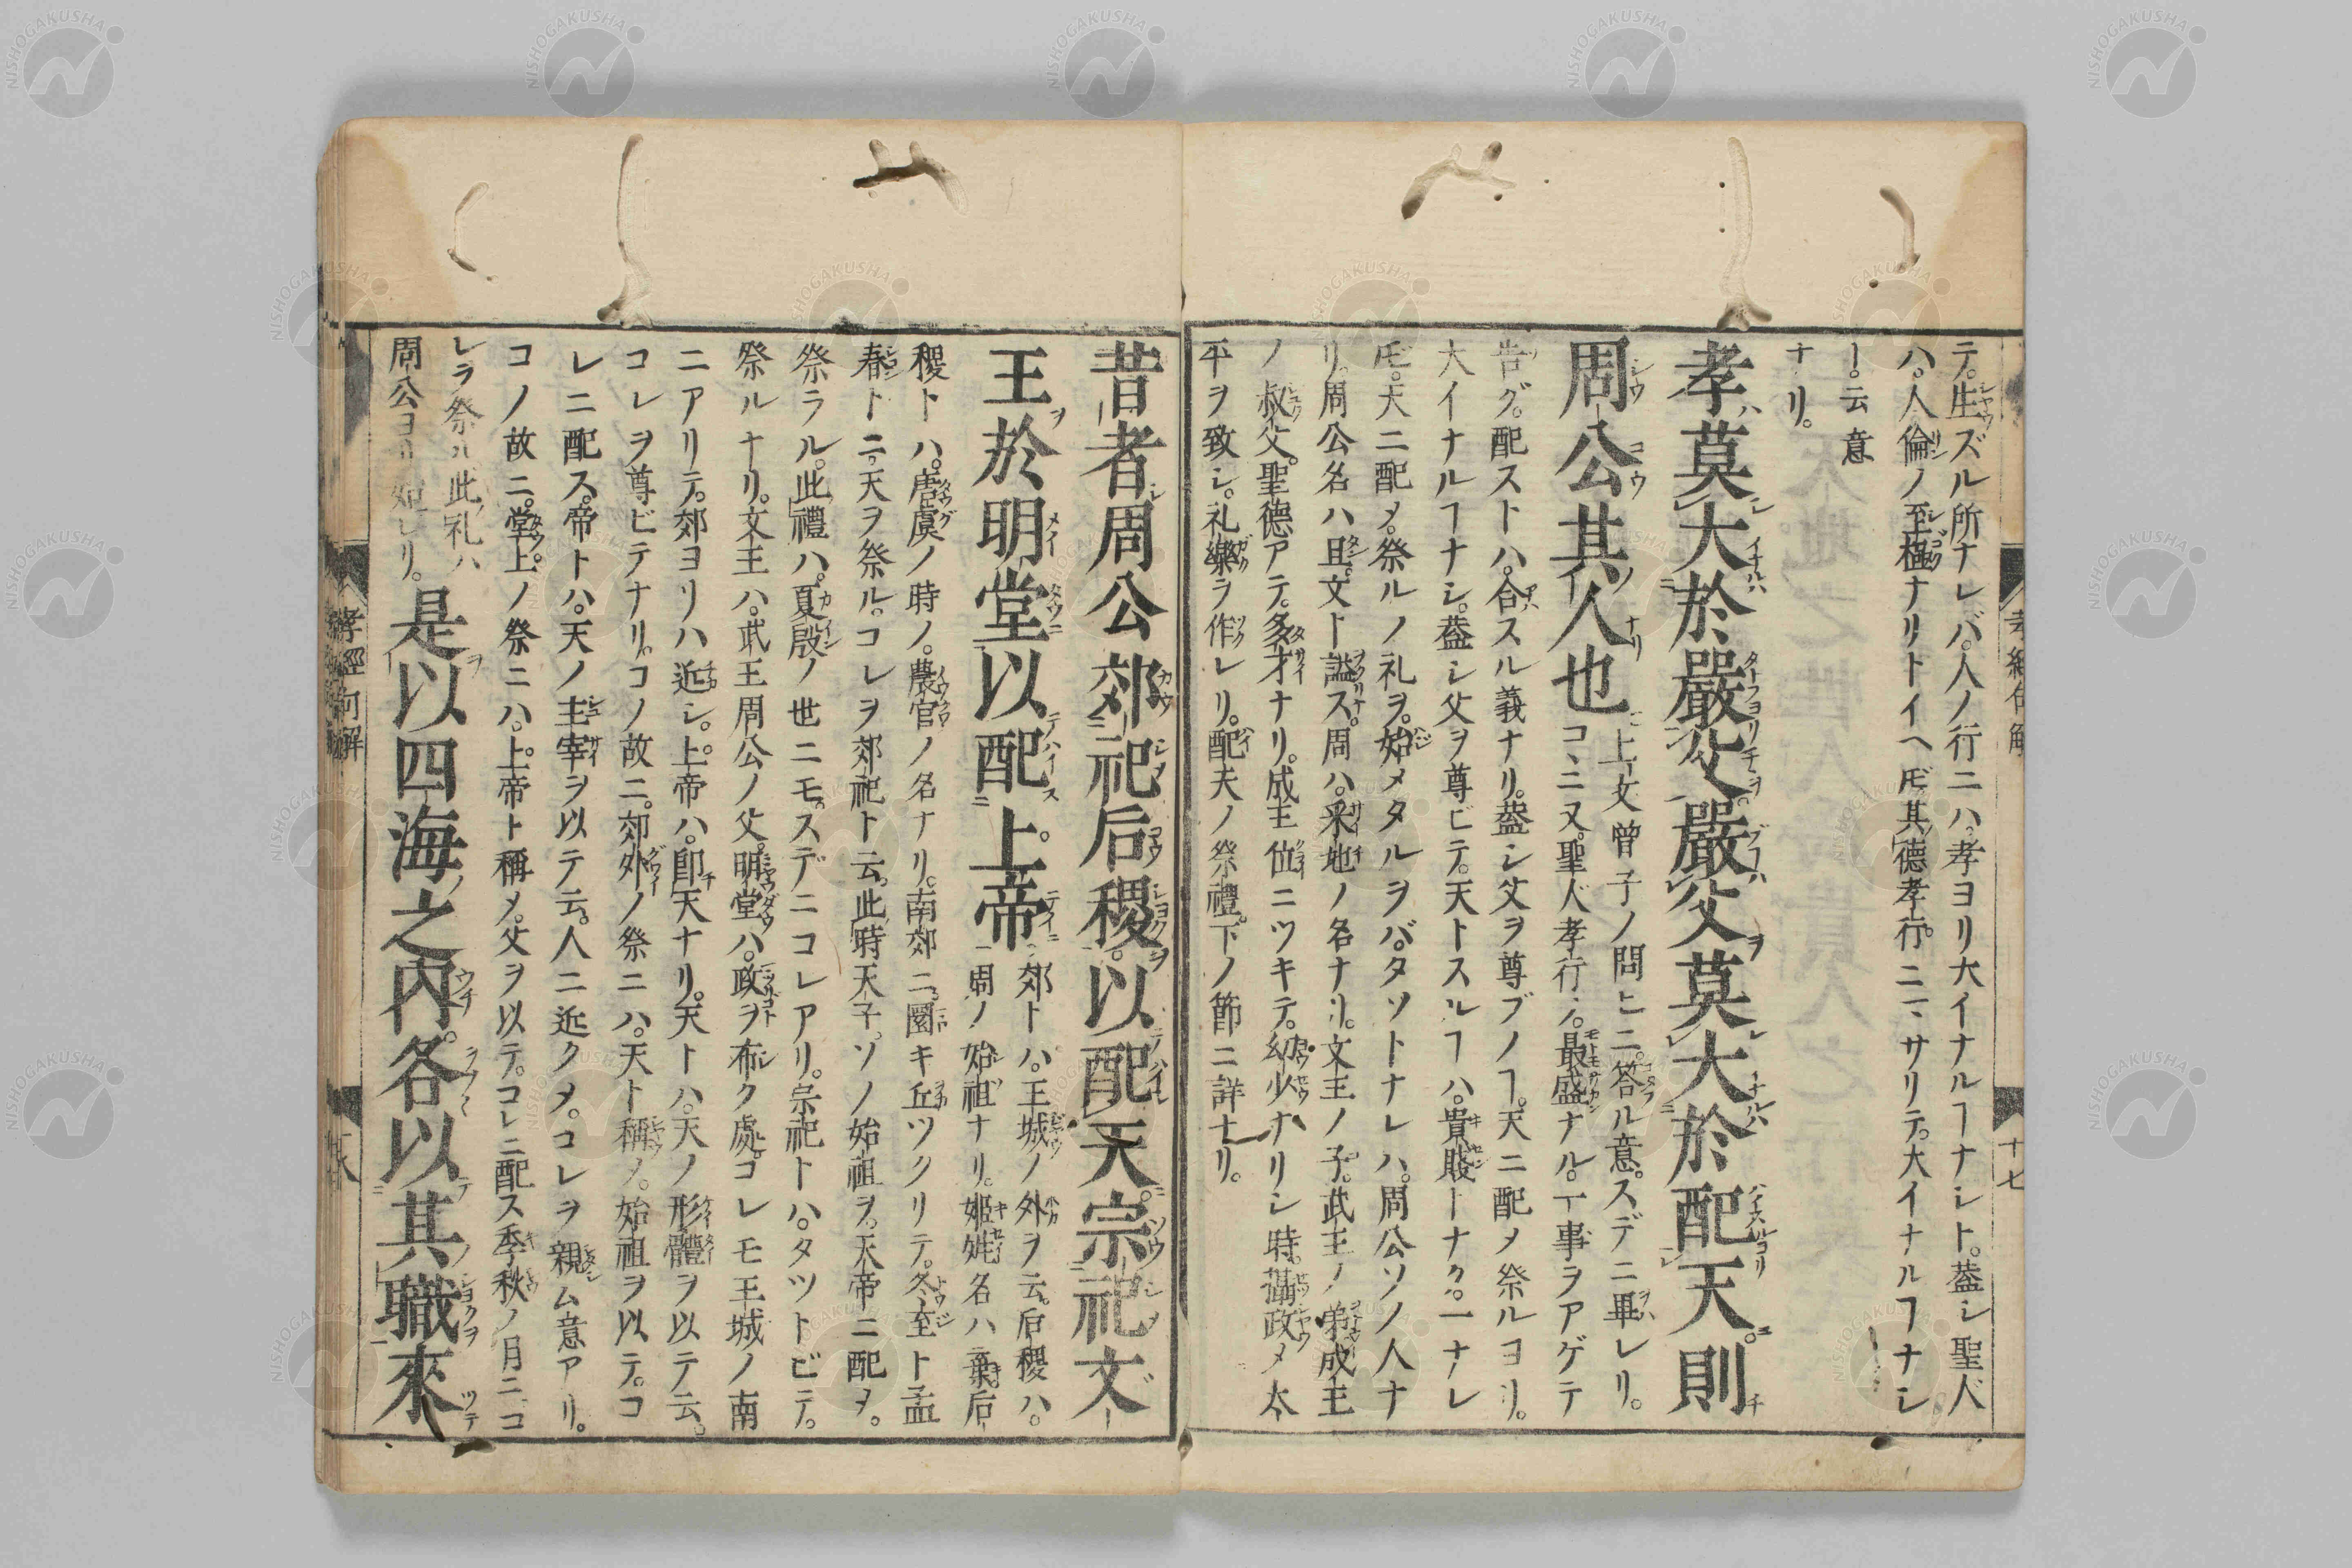 テ。生ズル所ナレバ。人ノ行ニハ。孝ヨリ大イナルヿナシト。蓋シ聖人
ハ。人倫ノ至極ナリトイヘ𪜈其德孝行。ニ丶サリテ。大イナルヿナシ
ー。云意
ナリ。
孝莫大於嚴父嚴父莫大於配天則
周公其人也
上文曾子ノ問ヒニ。答ル意。スデニ畢レリ。
コ丶ニ又。聖人孝行ノ。最盛ナル。一事ヲアゲテ
告グ。配ストハ。合スル義ナリ。蓋シ父ヲ尊ブノヿ。天ニ配メ祭ルヨリ。
大イナルヿナシ。蓋シ父ヲ尊ビテ。天トスルヿハ。貴賤トナク。一ナレ
𪜈。天ニ配メ。祭ルノ礼ヲ。始メタルヲバ。タソトナレハ。周公ソノ人ナ
リ。周公名ハ旦。文ト諡ス。周ハ。采地ノ名ナリ。文王ノ子。武王ノ弟。成王
ノ叔父。聖德アテ。多才ナリ。成王位ニツキテ。幼少ナリシ時。攝政メ太
平ヲ致シ。礼樂ヲ作レリ。配天ノ祭禮。下ノ節ニ詳ナリ。
昔者周公郊祀后稷。以配天。宗祀文
王於明堂以配上帝
郊トハ。王城ノ外ヲ云。后稷ハ。
周ノ始祖ナリ。姫姓名ハ棄。后
稷トハ。唐虞ノ時ノ。農官ノ名ナリ。南郊ニ。圜キ丘ツクリテ。冬至ト孟
春トニ。天ヲ祭ル。コレヲ郊祀ト云。此時天子。ソノ始祖ヲ。天帝ニ配ヲ。
祭ラル。此禮ハ。夏殷ノ世ニモ。スデニコレアリ。宗祀トハ。タツトビテ。
祭ルナリ。文王ハ。武王周公ノ父。明堂ハ。政ヲ布ク處。コレモ王城ノ南
ニアリテ。郊ヨリハ近シ。上帝ハ。卽天ナリ。天トハ。天ノ形體ヲ以テ云。
コレヲ尊ビテナリ。コノ故ニ。郊外ノ祭ニハ。天ト稱メ。始祖ヲ以テ。コ
レニ配ス。帝トハ。天ノ主宰ヲ以テ云。人ニ近クメ。コレヲ親ム意アリ。
コノ故ニ。堂上ノ祭ニハ。上帝ト稱メ。父ヲ以テ。コレニ配ス季秋ノ月ニ。コ
レラ祭ル。此礼ハ
周公ヨリ始レリ。
是以四海之內。各以其職來
孝經句解
十七